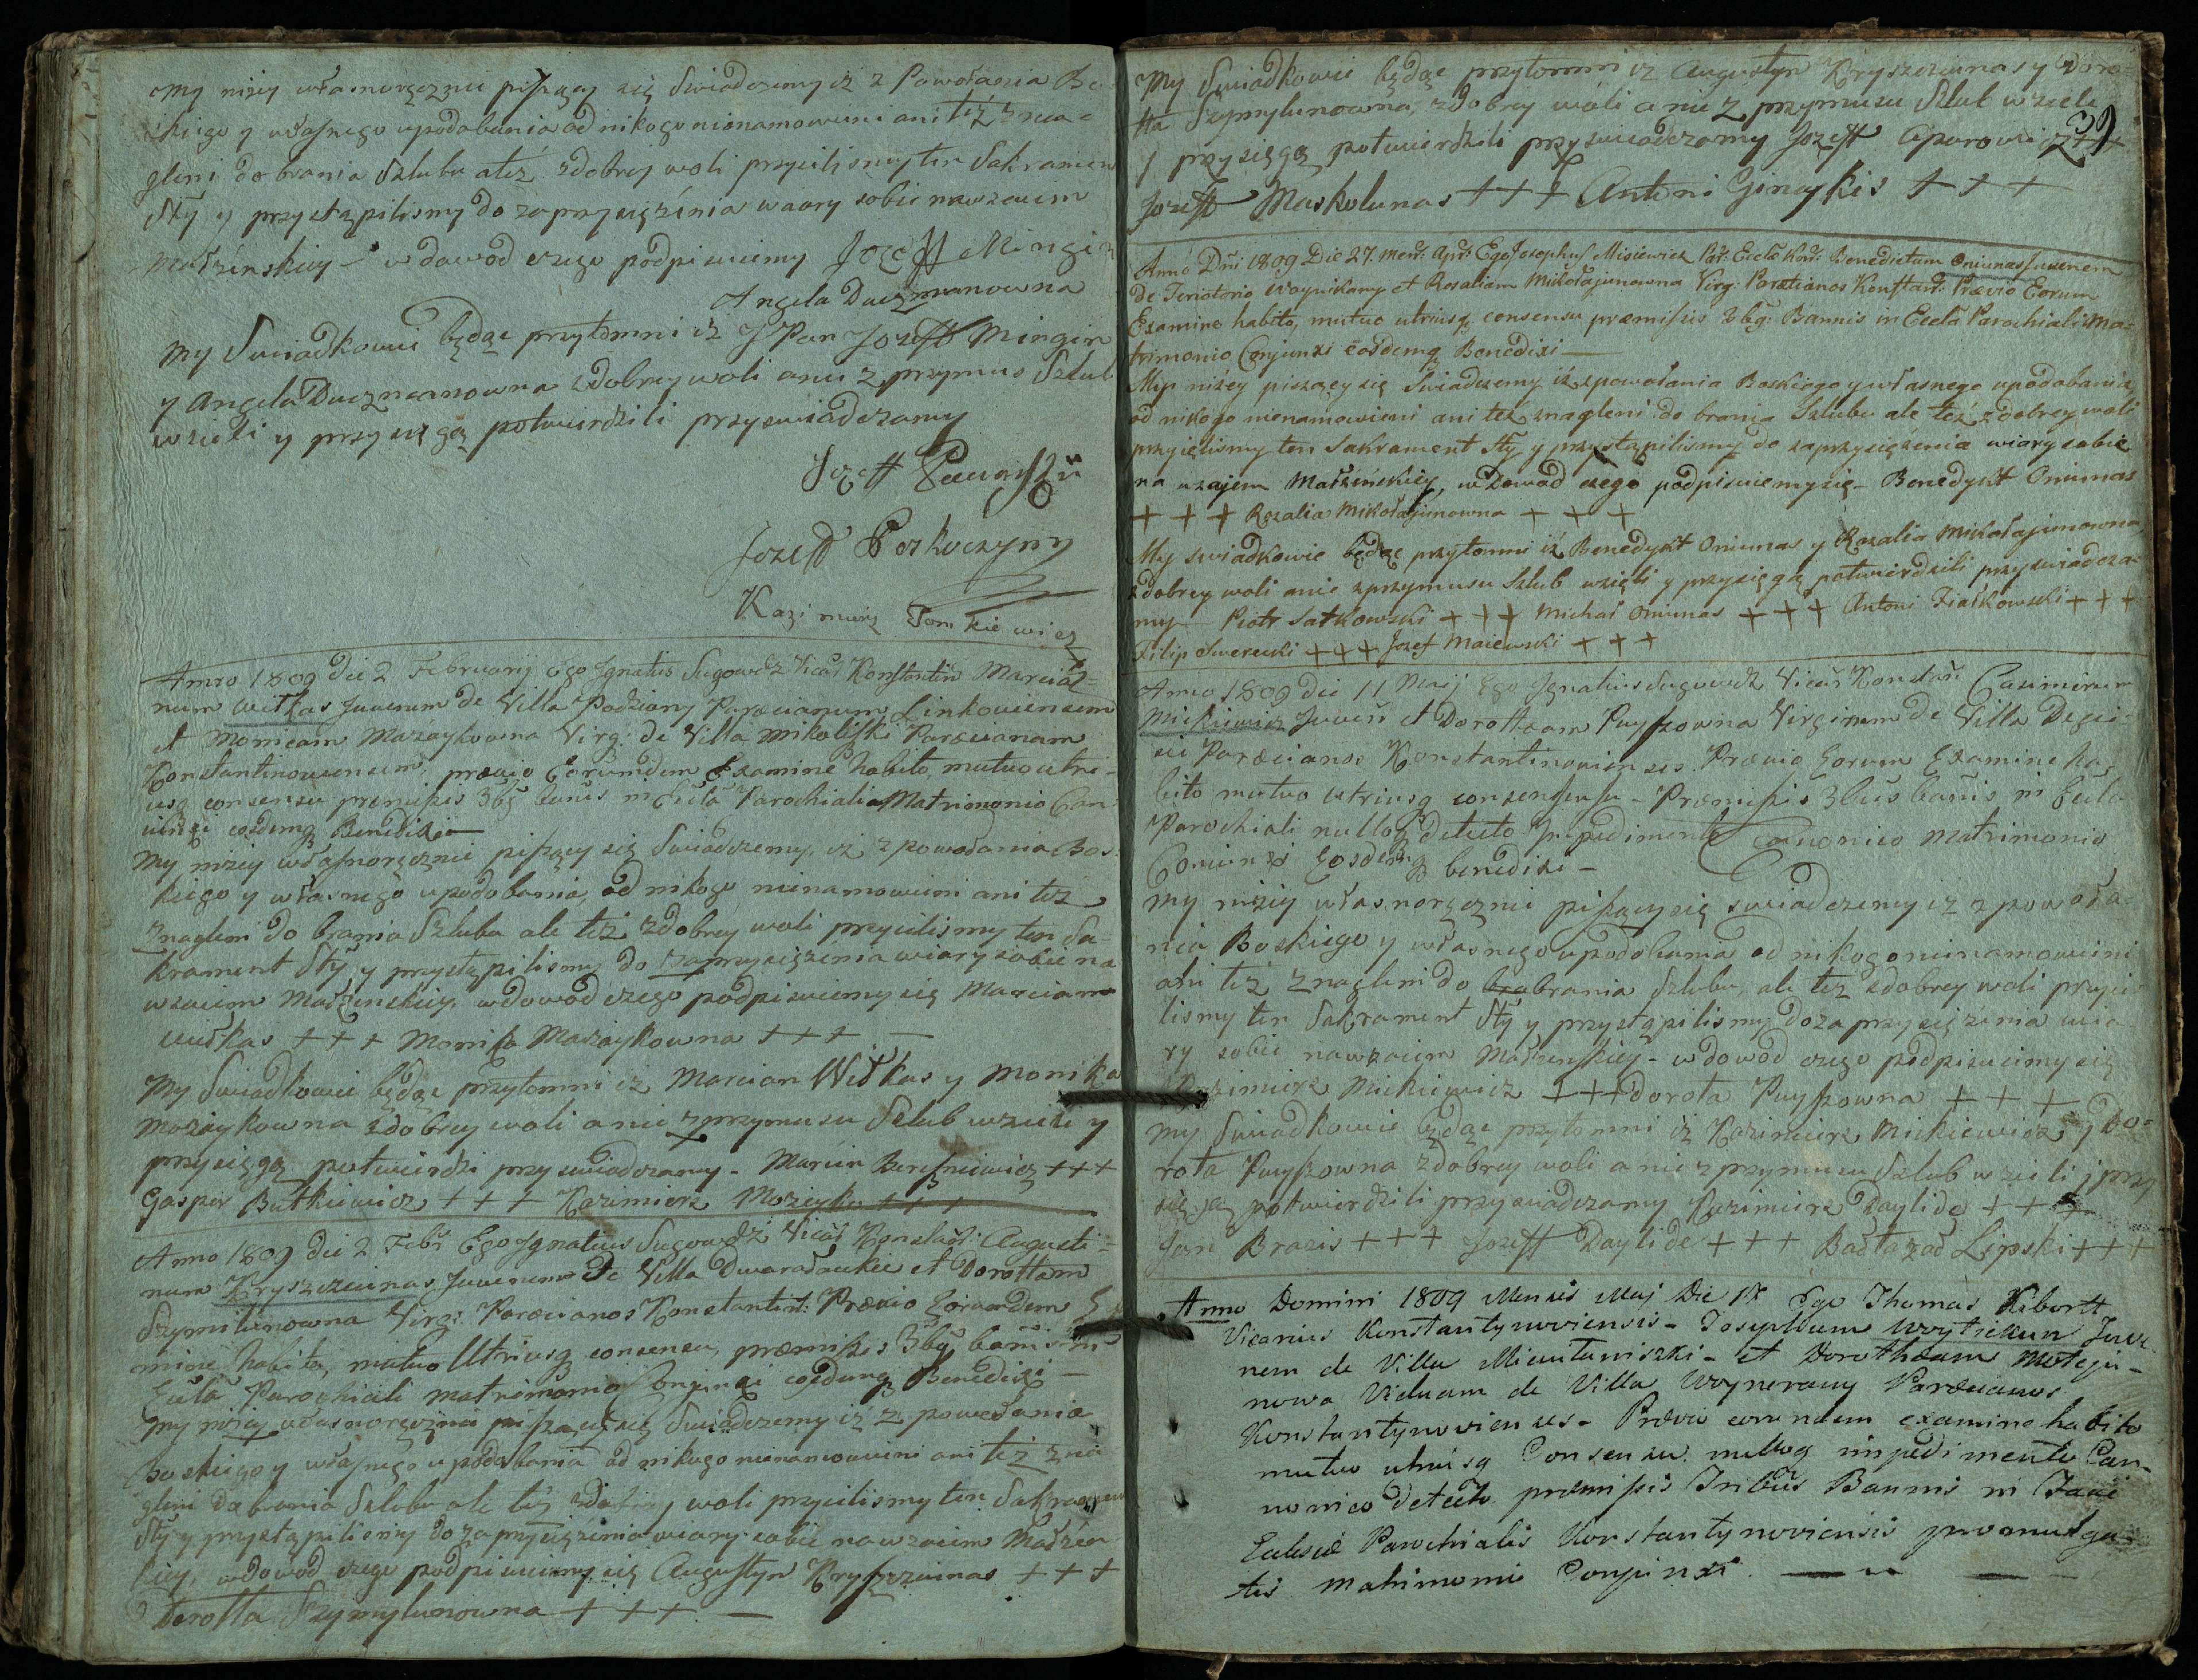 My niżey własnoręcznie piszący się Swiadczemy iż z Powołania Bo-
skiego y własnego upodobania od nikogo nienamowieni ani też zna-
gleni do brania Szlubu ależ zdobrej woli przyielismy ten Sakrament
Sty y przystąpilismy do zaprzysiężenia wiary sobie nawzaiem
Małżenskiey w dowod czego podpisuiemy Jozeff Mingin
Angela Duczmanowna
My Swiadkowie będąc przytomni iż J Pan Jozeff Mingin
y Angela Duczmanowna zdobrey woli anie z przymus Szlub
wzieli y przysięgą potwierdzili przyswiadczamy
Jozeff
Jozeff Poskoczyny
Kazimierz Tomkiewicz
Anno 1809 die 2 Februarij Ego Ignatius Sugowdz Vicař Konstantin Marcia-
num Witkas Juvenem de Villa Podziany Parœcianum Linkoviensem
et Monicam Mazaykowna Virg: de Villa Mikoliszki Parœcianam
Konstantinoviensem, prævio Eorumdem Examine habito, mutuo utri-
usq consensu præmissis 3bg bañis in Eccla Parochiali Matrimonio Con-
iunxi eosdemq Benedixi
My niżey własnoręcznie piszący się Swiadczemy, iż z powołania Bos-
kiego y własnego upodobania, od nikogo nienamowieni ani też
znagleni do brania Szlubu ale też zdobrey woli przyielismy ten Sa-
krament Sty y przystąpilismy do zaprzysiężenia wiary sobie na
wzaiem Małżenskiey, wdowod czego podpisuiemy się Marcian
Witkas +++ Monika Mazaykowna +++ —
My Swiadkowie będąc przytomni iż Marcian Witkas y Monika
Mozaykowna zdobrey woli a nie z przymusu Szlub wzieli y
przysięgą potwierdzi przyswiadczamy - Marcin Berezniewicz +++
Gasper Butkiewicz +++ Kazimierz Mozeyko +++
Anno 1809 die 2 Febr Ego Ignatius Sugowdz Vicař Konstañ: Augusti-
num Kryszczunas Juvenem de Villa Dwarałaukie et Dorottam
Szymilunowna Virg: Parœcianos Konstantin: Prævio Eorumdem Exa-
mine habito, mutuo Utriusq consensu, præmissis 3bg bañis in
Eccla Parochiali matrimonio Conjunxi eosdemq Benedixi —
My niżey własnoręcznie piszący się Swiadczemy iż z powołania
Boskiego y własnego upodobania od nikogo nienamowieni ani też zna
gleni do brania Szlubu ale też zdobrey woli przyielismy ten Sakrament
Sty y przystąpilismy do zaprzysiężenia wiary sobie nawzaiem Małżen
skiey, wdowod czego podpisuiemy się Augustyn Kryszczunas +++
Dorotta Szymylunowna +++ —
39
My Swiadkowie będąc przytomni iż Augustyn Kryszczunas y Doro-
tta Szymylunowna, zdobrey woli a nie z przymusu Szlub wzieli
y przysięgą potwierdzili przyswiadczamy Jozeff Aparowicz +++
Jozeff Maskolunas +++ Antoni Ginaykis +++
Anno Dñi 1809 Die 27. Mens: Apr: Ego Josephus Misiewicz Par: Eccla Kon: Benedictum Oniunas Juvenem
de Teriotorio Woynikany et Rosaliam Mikołajunowna Virg: Parœtianos Konstant: Prævio Eorum
Examine habito, mutuo utriusq consensu præmissis 3bg: Bannis in Eccla Parochiali Ma-
trimonio Conjunxi eosdemq Benedixi —
My niżey piszący się Swiadczemy iż zpowołania Boskiego y własnego upodobania,
od nikogo nienamowieni ani też znagleni do brania Szlubu ale też zdobrey woli
przyielismy ten Sakrament Sty y przystąpilismy do zaprzysiężenia wiary sobie
na wzajem Małżeńskiey, w Dowod czego podpisuiemy się - Benedykt Oniunas
+++ Rozalia Mikołajunowna +++
My swiadkowie będąc przytomni iż Benedykt Oniunas y Rozalia Mikołajunowna
zdobrey woli anie zprzymusu Szlub wzieli y przysięgą potwierdzili przyswiadcza-
my Piotr Satkowski +++ Michał Oniunas +++ Antoni Fiałkowski +++
Filip Swerecki +++ Jozef Maiewski +++
Anno 1809 die 11 Maij Ego Ignatius Sugowdz Vicař Konstañ Casimirum
Mickiewicz Juveñ et Dorottheam Puyszowna Virginem de Villa Degci-
sie Parœcianos Konstantinovienses. Prævio Eorum Examine ha-
bito mutuo utriusq consensusu - Præmissis 3bus bañis in Eccla
Parochiali nulloq detecto Impedimento Canonico Matrimonio
Coniunxi Eosdemq benedixi -
My niżey własnoręcznie piszący się swiadczemy iż z powoła-
nia Boskiego y własnego upodobania od nikogo nienamowieni
ani też znagleni do bra brania Szlubu, ale też zdobrey woli przyie
lismy ten Sakrament Sty y przystąpilismy do zaprzysiężenia wia
ry sobie nawzaiem Małżenskiey - w dowod czego podpisuiemy się
Kazimierz Mickiewicz +++ Dorota Puyszowna +++
My Swiadkowie będąc przytomni iż Kazimierz Mickiewicz y Do-
rota Puyszowna zdobrey woli a nie z przymusu Szlub wzieli y przy
sięgą potwierdzili przyswiadczamy Kazimierz Daylide +++
Jan Brazis +++ Jozeff Daylide +++ Bałtazał Lipski +++
Anno Domini 1809 Mensis Maj Die 17 Ego Thomas Kibortt
Vicarius Konstantynoviensis - Josephum Woytiekun Juve
nem de Villa Mieutaniszki - et Dorotheam Moteju-
nowa Viduam de Villa Woynerany Parœcianos
Konstantynovienses - Prævio eorumdem examine habito
mutuo utriusq Consensu nulloq impedimento Can-
nonico detecto præmissis Tribus Bannis in Facie
Eclesiæ Parochialis Konstantynoviensis promulga-
tis matrimonio Conjunxi —